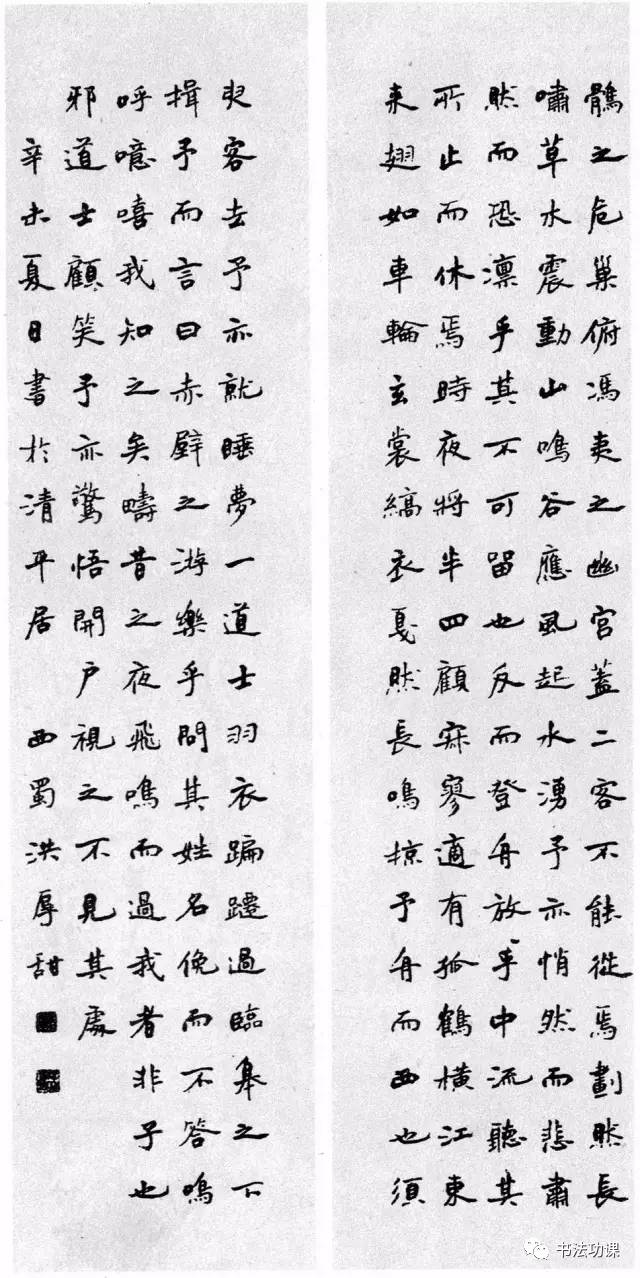 鶻之危巢俯馮夷之幽宮蓋二客不能從焉劃然長
嘯草木震動山鳴谷應風起水湧予亦悄然而悲肅
然而恐凜乎其不可留也反而登舟放乎中流聽其
所止而休焉時夜將半四顧寂寥適有孤鶴橫江東
來翅如車輪玄裳縞衣戛然長鳴掠予舟而西也須
臾客去予亦就睡夢一道士羽衣蹁躚過臨皋之下
揖予而言曰赤壁之游樂乎問其姓名俛而不答嗚
呼噫嘻我知之矣疇昔之夜飛鳴而過我者非子也
邪道士顧笑予亦驚悟開戶視之不見其處
辛未夏日書於清平居 西蜀洪厚甜
书法功课